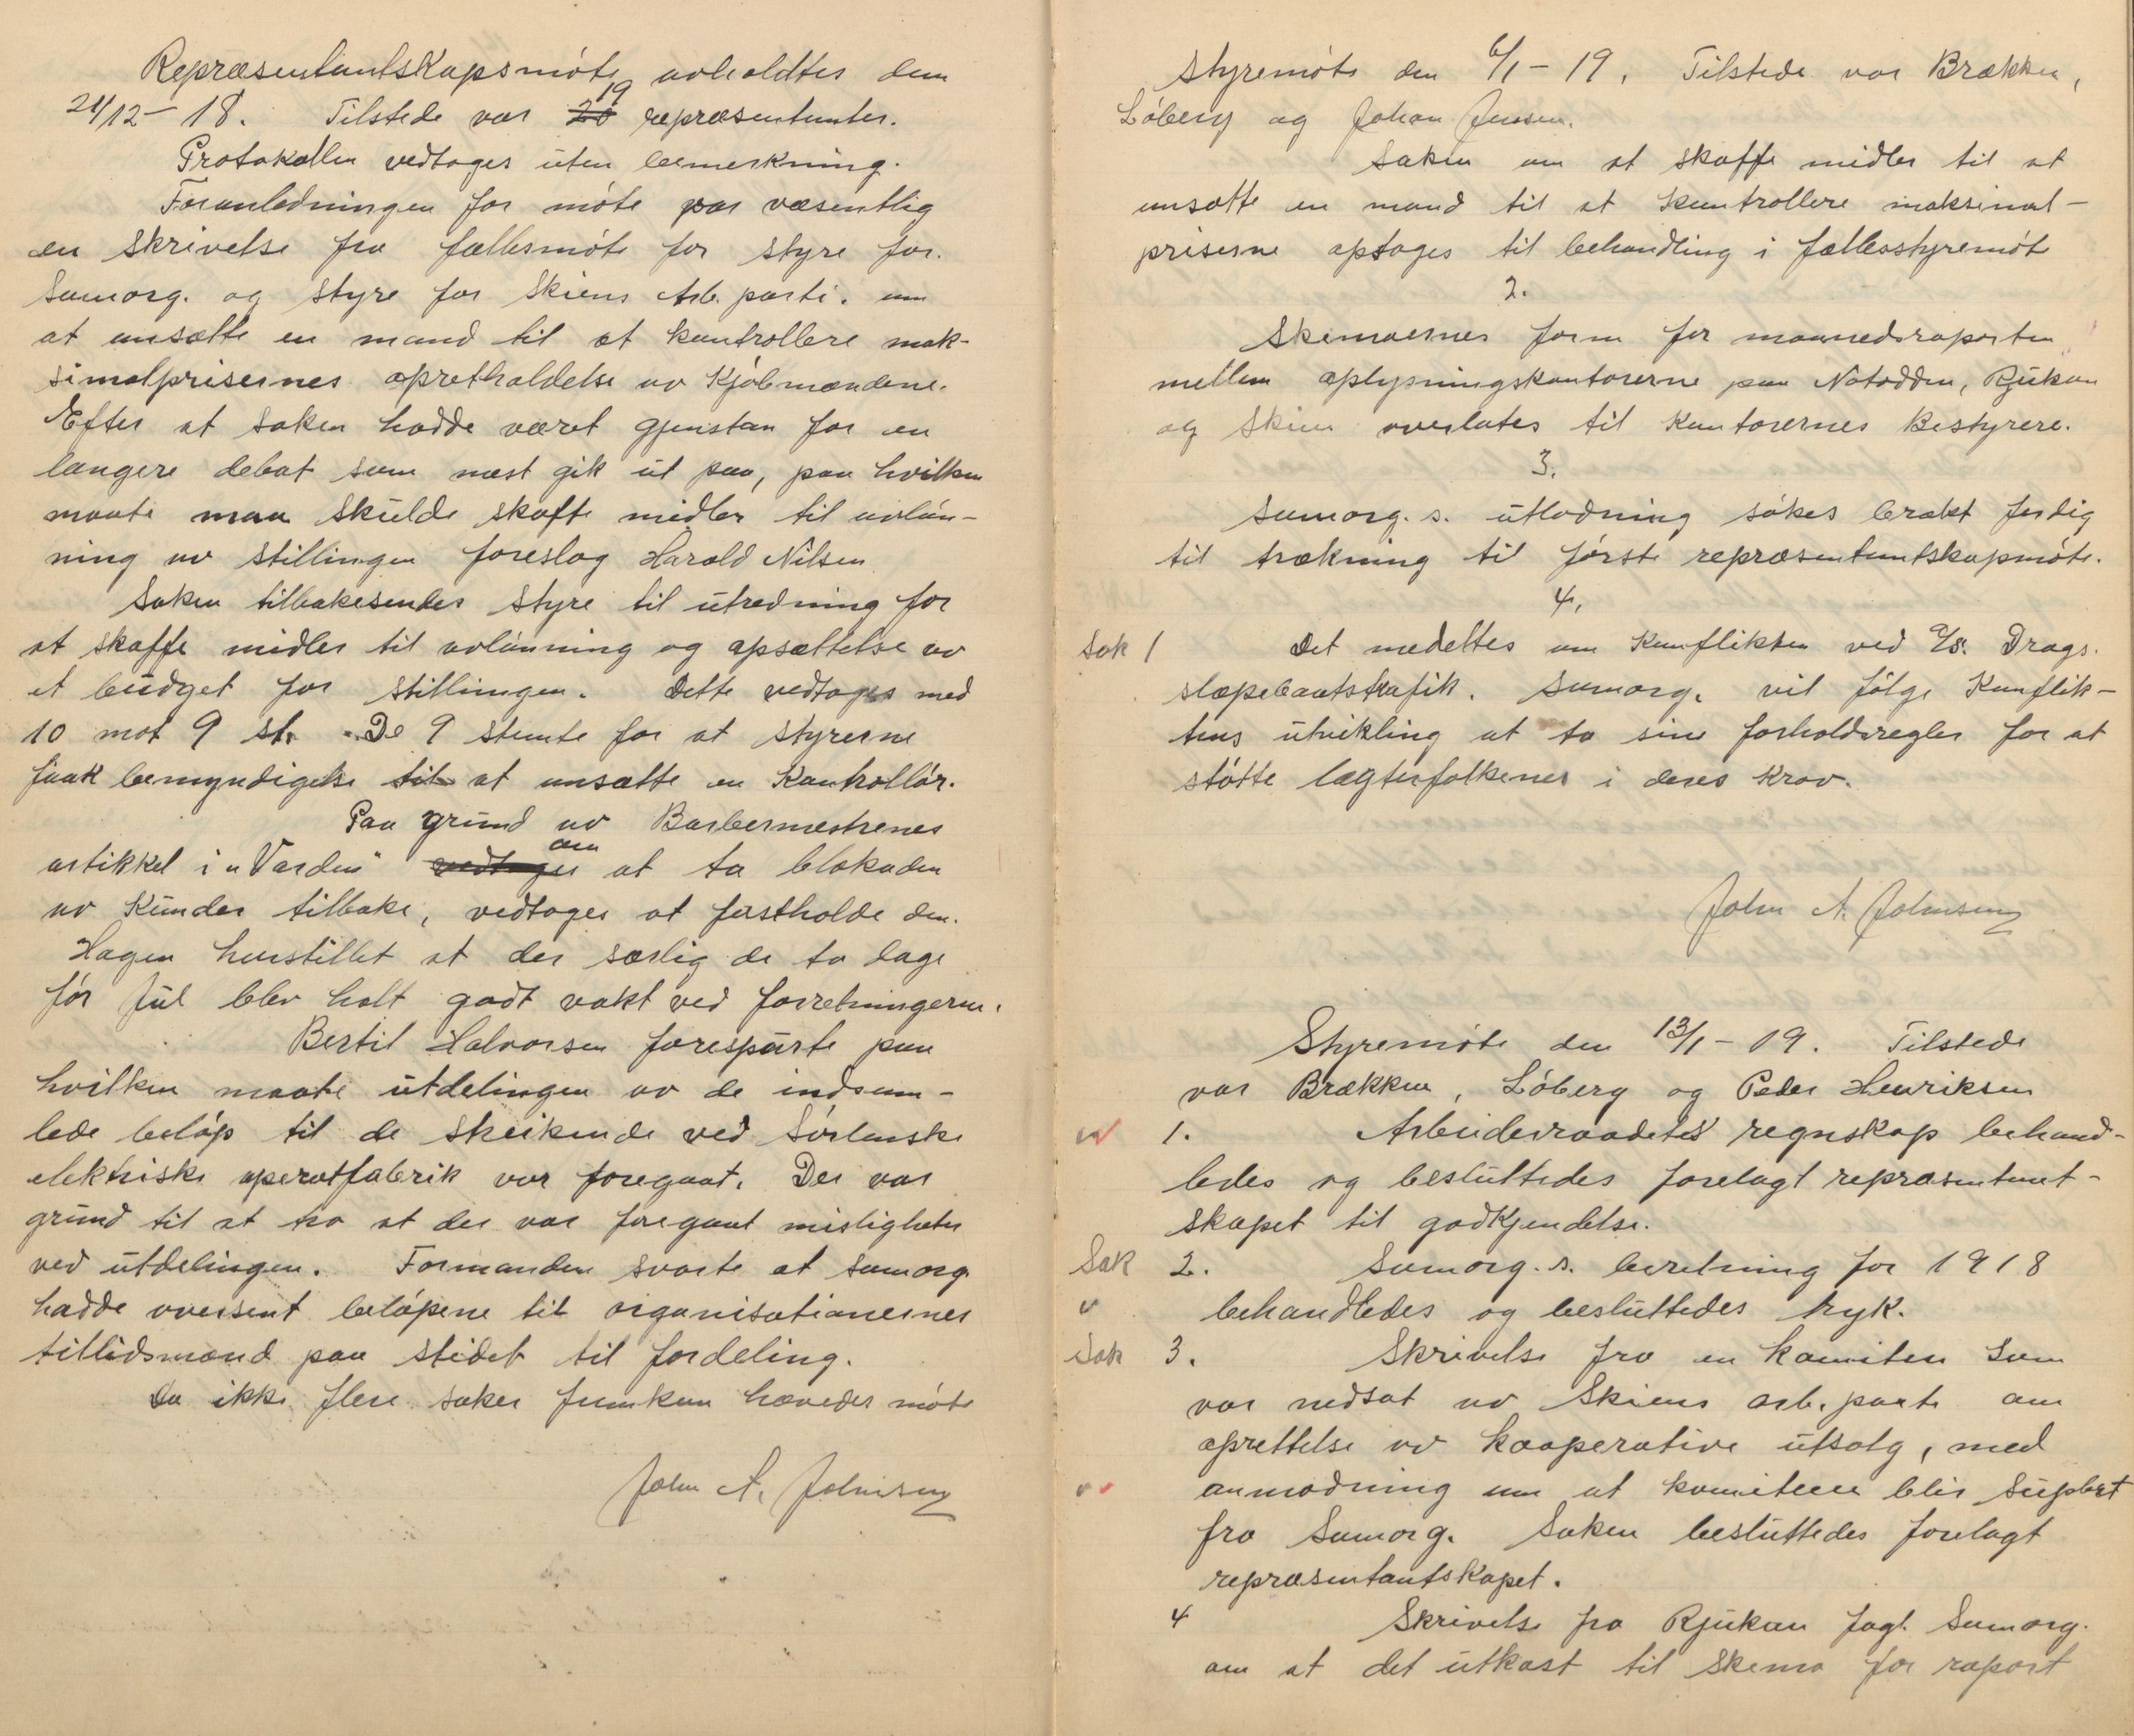 Repræsentantskapsmöte avholdtes den
21/12 - 18. Tilstede var 19 repræsentanter.
Protokollen vedtages uten bemerkning.
Foranledningen for möte var væsentlig
en skrivelse fra fællesmöte for styre for.
Samorg. og styre for Skiens Arb. parti. om
at ansætte en mand til at kontrollere mak-
simalprisernes opretholdelse av Kjöbmændene.
Efter at saken hadde været gjenstan for en
længere debat som mest gik ut paa, paa hvilken
maate man skulde skaffe midler til avløn-
ning av stillingen foreslog Harald Nilsen
Saken tilbakesendes styre til utredning for
at skaffe midler til avlönning og opsættelse av
et budget for stillingen. Dette vedtoges med
10 mot 9 st. De 9 stemte for at styrerne
faak bemyndigelse til at ansætte en Kontrollör.
Paa grund av Barbermestrenes
artikkel i "Varden" vedtoges om at ta blokaden
av Kunder tilbake, vedtoges at fastholde den.
Hagen henstillet at der særlig de to dage
för Jul blev holt godt vakt ved forretningerne.
Bertil Halvorsen foresparte paa
hvilken maate utdelingen av de indsam-
lede belöp til de streikende ved Sörlenske
elektriske aperatfabrik var foregaat. Der var
grund til at tro at der var foregaat misligheter
ved utdelingen. Formanden svarte at samorg
hadde oversent belöpene til organisationernes
tillidsmænd paa stedet til fordeling.
Da ikke flere saker fremkom hævedes möte
John A. Johnsen
Styremöte den 6/1 - 19. Tilstede var Brækken,
Löberg og Johan Jensen.
Saken om at skaffe midler til at
ansætte en mand til at kontrollere maksimal-
priserne optoges til behandling i fællesstyremöte
2.
Skemaernes form for maanedsraporten
mellem oplysningskontorerne paa Notodden, Rjukan
og Skien overlates til Kontorernes Bestyrere.
3.
Samorg. s. utlodning sökes brakt ferdig
til trækning til förste repræsentantskapmöte.
4.
Sak 1 Det medeltes om Konflikten ved A/S. Drags.
slæpebaatstrafik. Samorg. vil fölge Konflik-
tens utvikling at ta sine forholdsregler for at
stötte lægterfolkenes i deres Krav.
John A. Johnsen
Styremöte den 13/1 - 19. Tilstede
var Brækken, Löberg og Peder Henriksen
1. Arbeiderraadetes regnskap behand-
ledes og besluttedes forelagt repræsentant-
skapet til godkjendelse.
Sak 2. Samorg. s. beretning for 1918
v behandledes og besluttedes tryk.
Sak 3. Skrivelse fra en komiteen som
var nedsat av Skiens arb. parte om
oprettelse av kooperative utsalg, med
anmodning om at komiteen blir suplert
fra Samorg. Saken besluttedes forelagt
repræsentantskapet.
4 Skrivelse fra Rjukan fagl. Samorg.
om at det utkast til skema for raport